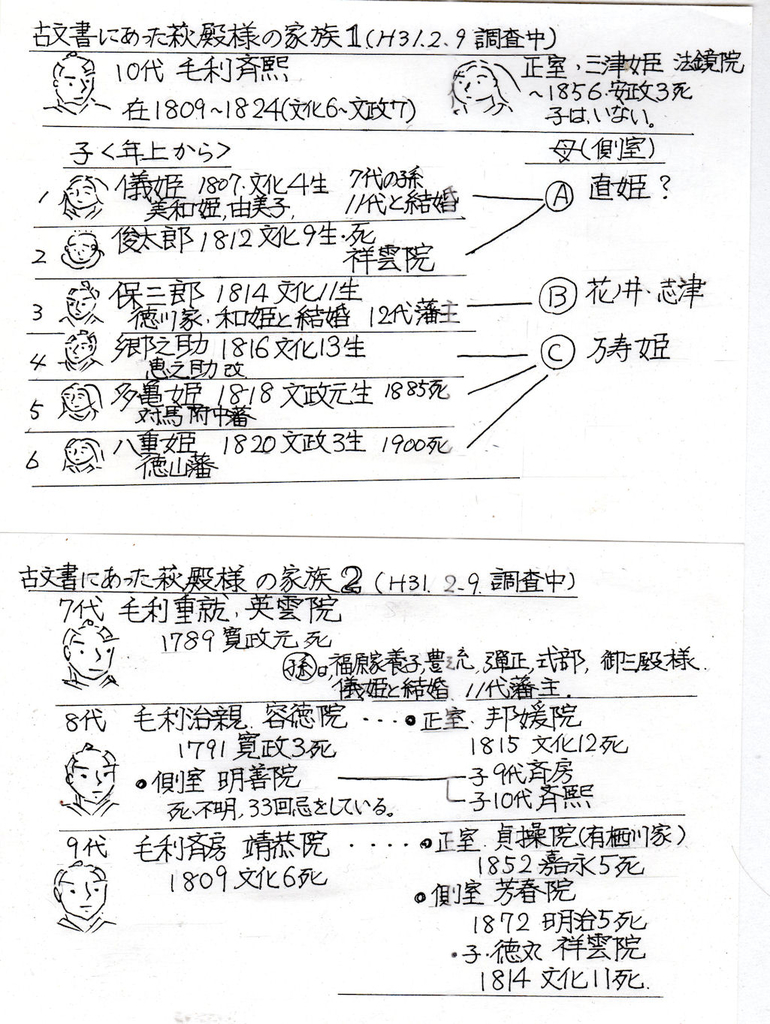 古文書にあった萩殿様の家族1(H31.2.9調査中)
10代 毛利斉熙
在1809~1824(文化6~文政7)
正室・三津姫 法鏡院
~1856・安政3死
子はいない。
子<年上から>
母(側室)
1 儀姫 1807・文化4生 7代の孫
美和姫,由美子, 11代と結婚
Ⓐ 直姫?
2 俊太郎 1812文化9生・死
祥雲院
3 保三郎 1814文化11生
徳川家・和姫と結婚 12代藩主
Ⓑ 花ノ井・志津
4 郷之助 1816文化13生
恵之助 改
Ⓒ 万寿姫
5 多亀姫 1818文政元生 1885死
対馬府中藩
6 八重姫 1820文政3生 1900死
徳山藩
古文書にあった萩殿様の家族2(H31.2.9.調査中)
7代 毛利重就.英雲院
1789寛政元死
孫は,福原家養子,豊 弾正,式部,御三殿様.
儀姫と結婚 11代藩主.
8代 毛利治親.容徳院・・・●正室.邦媛院
1791寛政3死
1815 文化12死
●側室 明善院
子9代斉房
子10代斉熙
死・不明,33回忌をしている。
9代 毛利斉房 靖恭院・・・・●正室.貞操院(有栖川家)
1809文化6死
1852嘉永5死
●側室 芳春院
1872明治5死
・子・徳丸 祥雲院
1814文化11死.